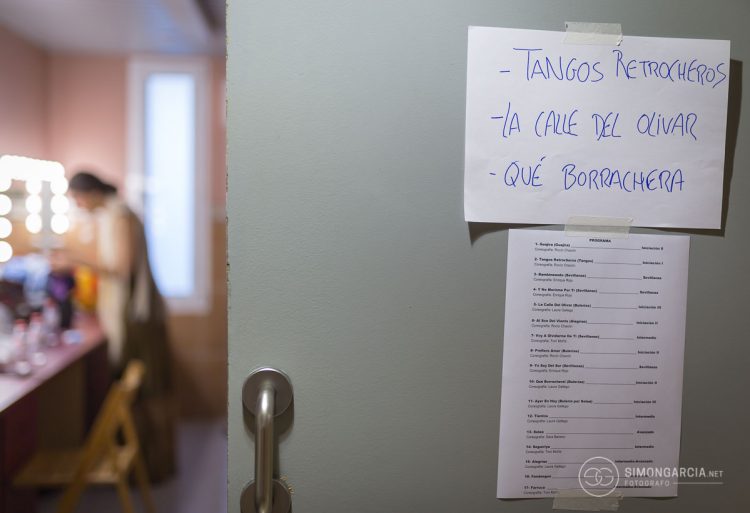 - TANGOS RETROCHEROS
- LA CALLE DEL OLIVAR
- QUÉ BORRACHERA
PROGRAMA
1- Guajira (Guajira) Iniciación II
Coreografía: Rocío Chacón
2- Tangos Retrocheros (Tangos) Iniciación I
Coreografía: Rocío Chacón
3- Bamboleando (Sevillanas) Sevillanas
Coreografía: Enrique Rojo
4- Y Me Moriene Por Ti (Sevillanas) Sevillanas
Coreografía: Enrique Rojo
5- La Calle Del Olivar (Bulerías) Iniciación III
Coreografía: Laura Gallego
6- Al Son Del Viento (Alegrías) Iniciación II
Coreografía: Rocío Chacón
7- Voy A Dividirme De Ti (Sevillanas) Intermedio
Coreografía: Toni Moñiz
8- Prefiero Amar (Bulerías) Iniciación II
Coreografía: Rocío Chacón
9- Yo Soy Del Sur (Sevillanas) Sevillanas
Coreografía: Enrique Rojo
10- Que Borrachera! (Bulerías) Iniciación II
Coreografía: Laura Gallego
11- Ayer En Hoy (Bulería por Soleá) Iniciación III
Coreografía: Laura Gallego
12- Tientos Intermedio
Coreografía: Laura Gallego
13- Soleá Avanzado
Coreografía:
14- Seguiriya Intermedio
Coreografía: Toni Moñiz
15- Alegrías Intermedio-Avanzado
Coreografía: Laura Gallego
16- Fandangos
17- Farruca
Coreografía: Toni
SIMONGARCIA.NET
FOTÓGRAFO